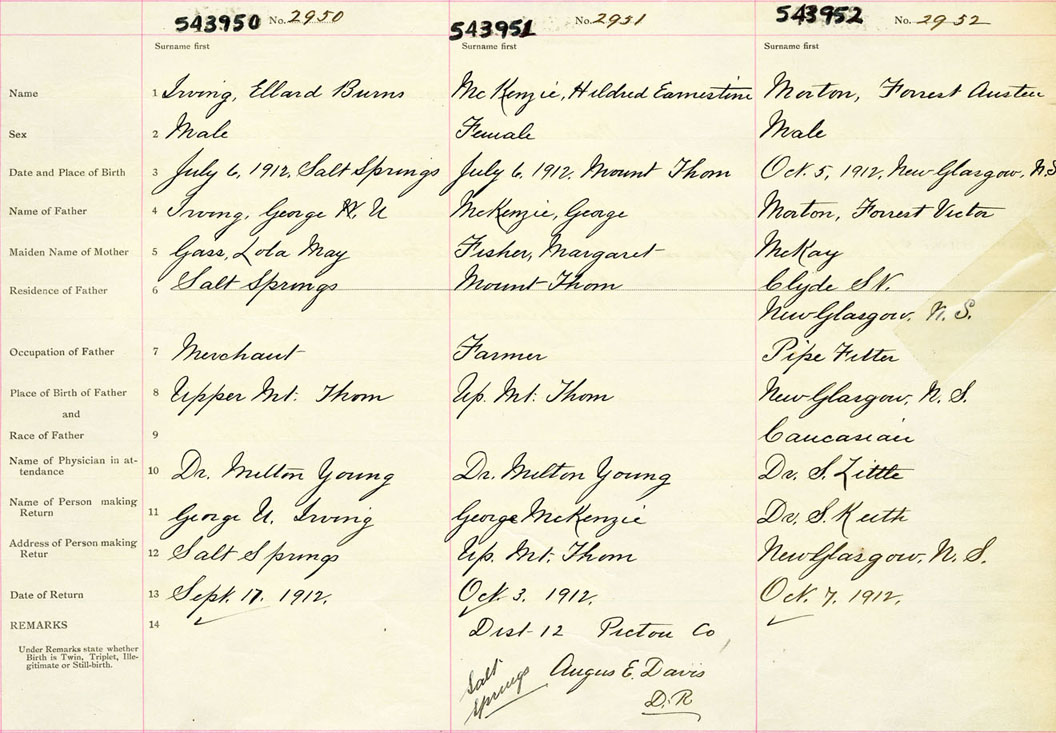 543950 No. 2950 543951 No. 2951 543952 No. 2952
Surname first Surname first Surname first
Name 1 Irving, Ellard Burns McKenzie, Hildred Earnestine Morton, Forrest Austen
Sex 2 Male Female Male
Date and Place of Birth 3 July 6, 1912, Salt Springs July 6, 1912, Mount Thom Oct. 5, 1912, New Glasgow, N.S
Name of Father 4 Irving, George U McKenzie, George Morton, Forrest Victor
Maiden Name of Mother 5 Gass, Lola May Fisher, Margaret McKay
Residence of Father 6 Salt Springs Mount Thom Clyde St.
New Glasgow, N. S.
Occupation of Father 7 Merchant Farmer Pipe Fitter
Place of Birth of Father 8 Upper Mt. Thom Up. Mt. Thom New Glasgow, N. S.
and
Race of Father 9 Caucasian
Name of Physician in at-
tendance 10 Dr. Milton Young Dr. Milton Young Dr. S. Little
Name of Person making
Return 11 George U. Irving George McKenzie Dr. S. Keith
Address of Person making
Retur 12 Salt Springs Up. Mt. Thom New Glasgow, N. S.
Date of Return 13 Sept. 17. 1912. Oct 3. 1912. Oct. 7. 1912.
REMARKS 14 Dist 12 Pictou Co
Under Remarks state whether
Birth is Twin, Triplet, Ille-
gitimate or Still-birth.
Salt
Springs
Angus E. Davis
D. R